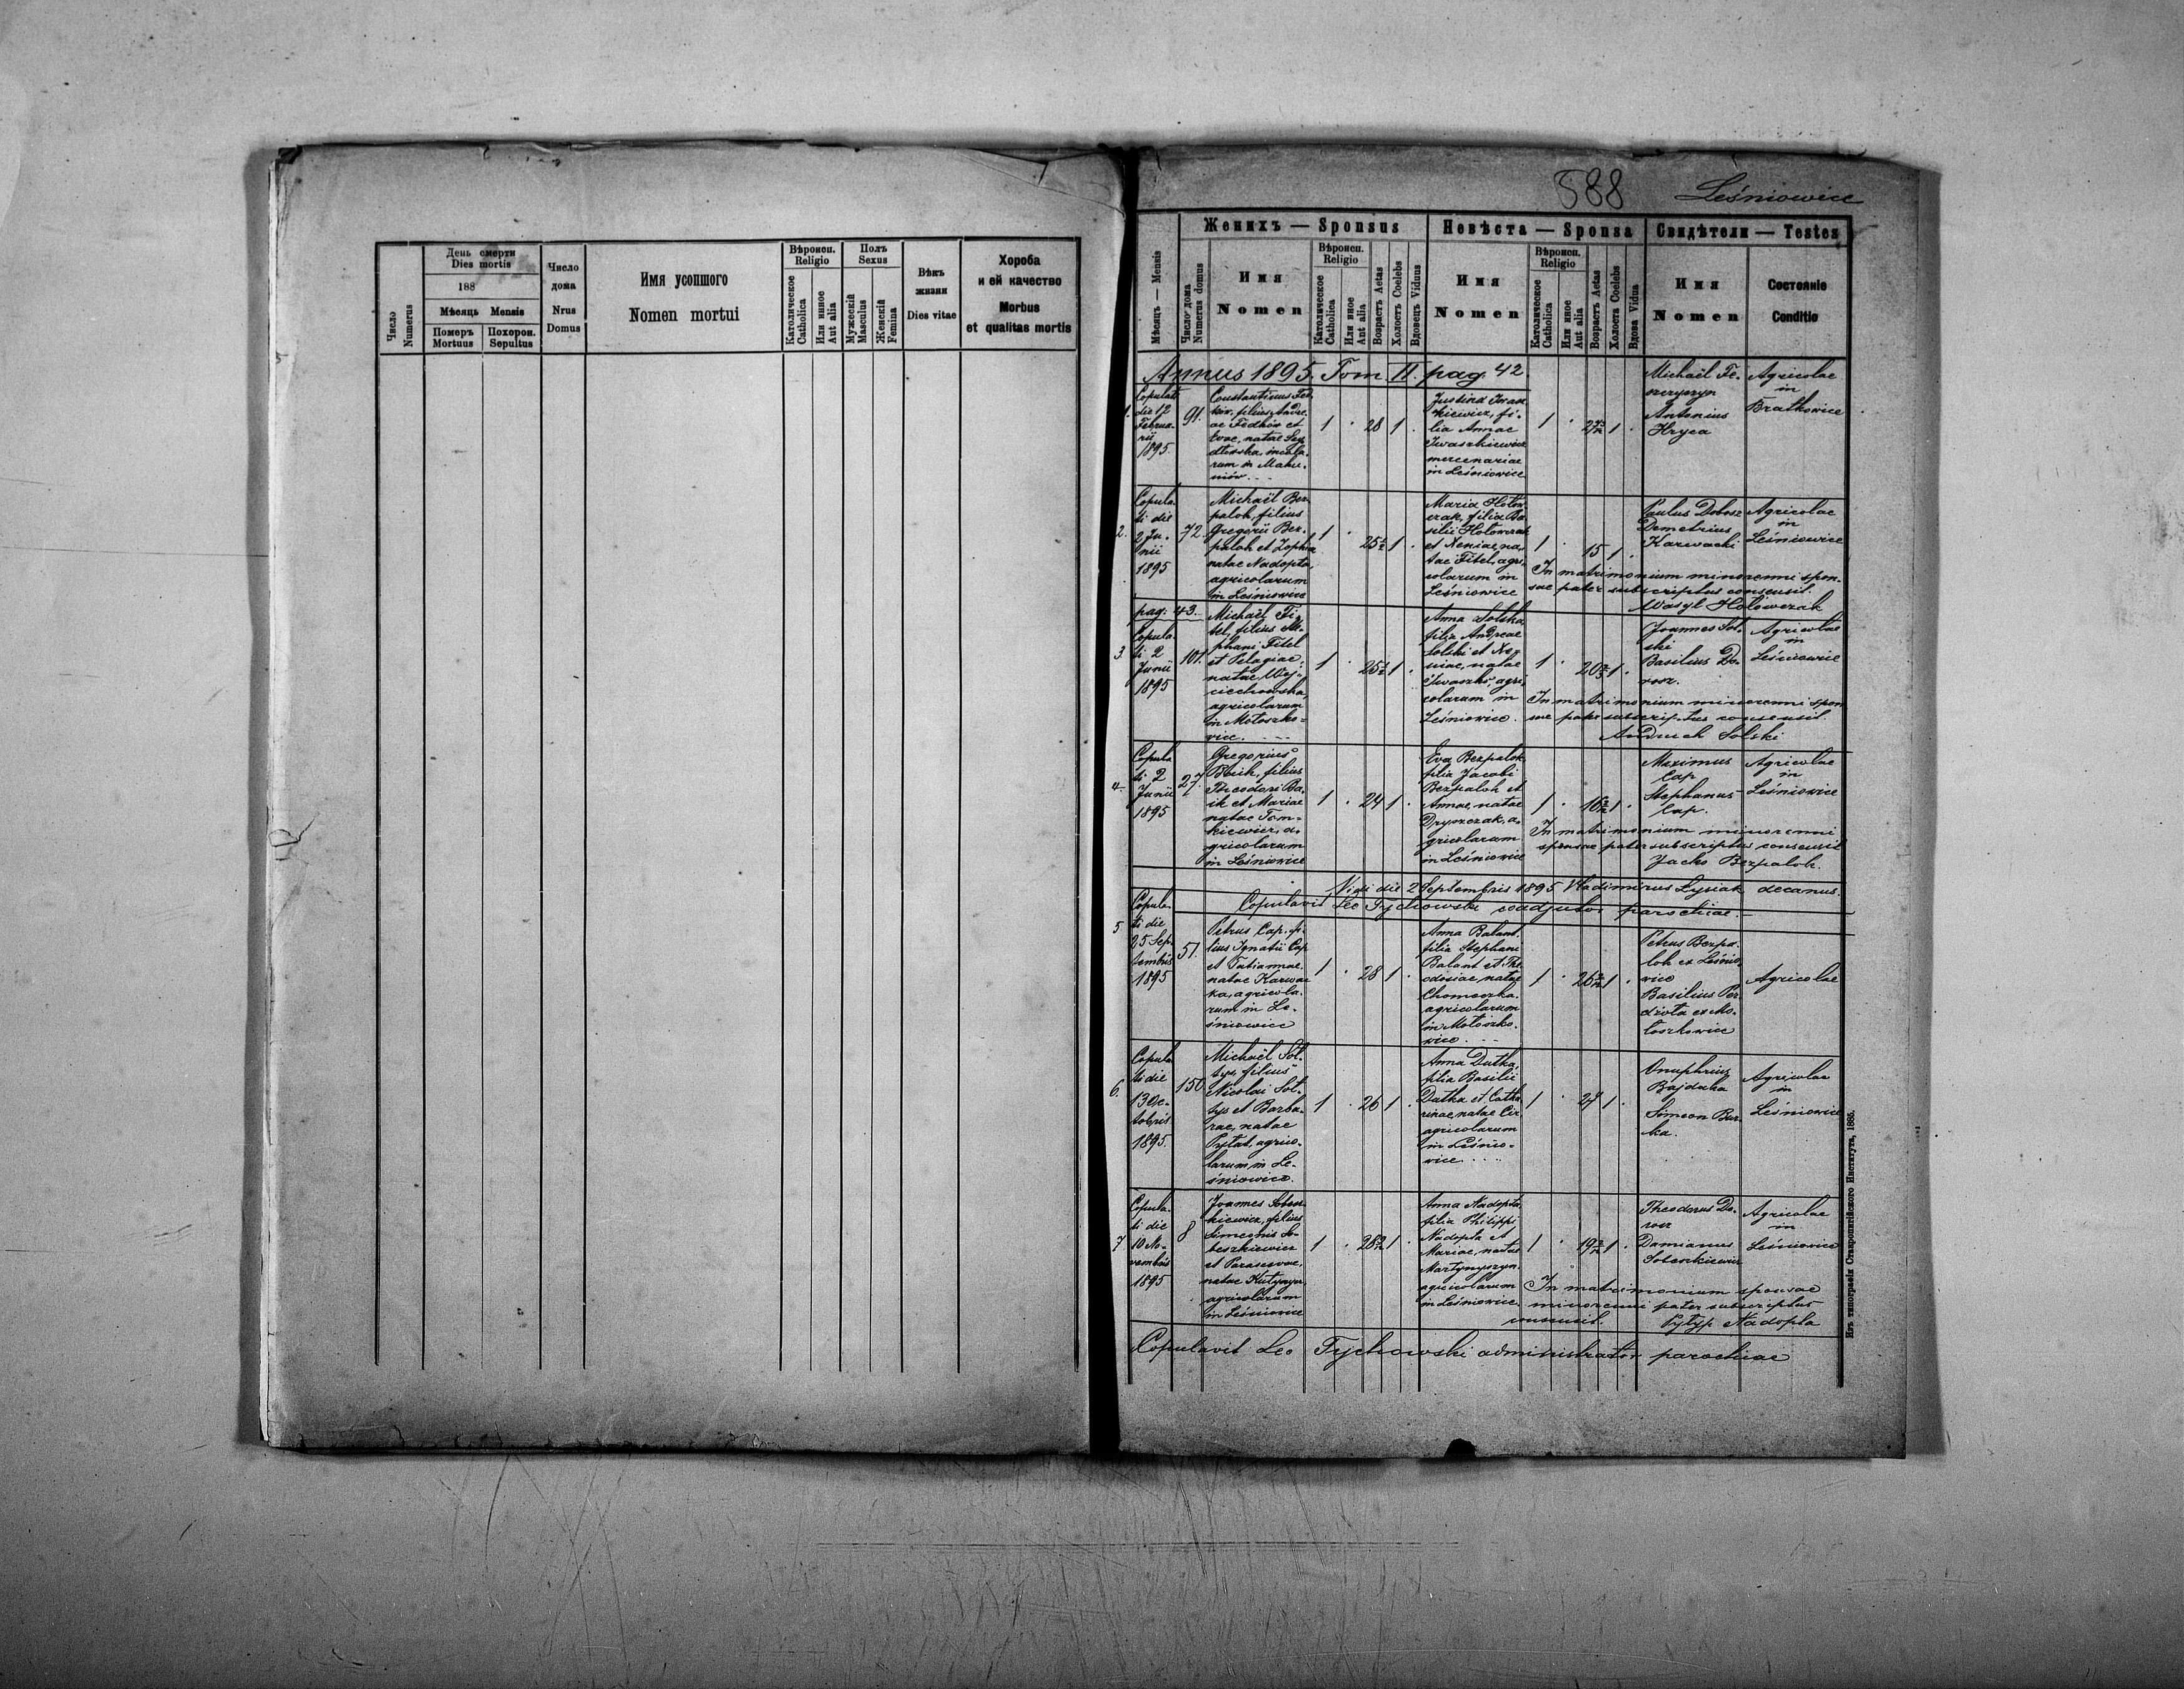 Число
Numerus
День смерти
Dies mortis
188
Мѣсяць Mensis
Померъ
Mortuus
Похорон.
Sepultus
Число
дома
Nrus
Domus
Имя усопшого
Nomen mortui
Вѣроисп.
Religio
Католическое
Catholica
Или инное
Aut alia
Полъ
Sexus
Мужескій
Masculus
Женскій
Femina
Вѣкъ
жизни
Dies vitae
Хороба
и ей качество
Morbus
et qualitas mortis
588
Leśniowice
Мѣсяць — Mensis
Число дома
Numerus domus
Женихъ — Sponsus
Имя
Nomen
Вѣроисп.
Religio
Католическое
Catholica
Или инное
Aut alia
Возрастъ Aetas
Холостъ Coelebs
Вдовецъ Viduus
Невѣста — Sponsa
Имя
Nomen
Вѣроисп.
Religio
Католическое
Catholica
Или иное
Aut alia
Возрастъ Aetas
Холоста Coelebs
Вдова Vidua
Свидѣтели — Testes
Имя
Nomen
Состояніе
Conditio
Annus 1895. Tom. II. pag. 42.
1.
Copulati
die 12
Februa-
rii
1895.
91.
Constantinus Fed-
ków, filius Andre-
ae Fedków et
Evae, natae
incola-
rum in
1 . 28 1 .
Justina Iwasz-
kiewicz, fi-
lia Annae
Iwaszkiewicz
mercenariae
in Leśniowice
1 . 1 .
Michaël
Antonius
Hryca
Agricolae
in
Bratkowice
2.
Copula-
ti die
2 Ju-
nii
1895
72.
Michaël Bez-
paloh, filius
Gregorii Bez-
paloh et Zophia
natae Nadopta,
agricolarum
in Leśniowice
1 . 25½ 1 .
Maria Hołow-
czak, filia Ba-
silii Hołowczak
et Xeniae, na-
tae Fitel, agri-
colarum in
Leśniowice
1 . 15 1 .
Paulus Dobosz
Demetrius
Karwacki
Agricolae
in
Leśniowice
In matrimonium minorenni spon-
sae pater subscriptus consensit.
Wasyl Hołowczak
pag. 43.
3.
Copula-
ti 2
Junii
1895
101.
Michaël Fi-
tel, filius Ste-
phani Fitel
et Pelagiae,
natae Woj-
ciechowska,
agricolarum
in Mołoszko-
wice.
1 . 1 .
Anna Solska
filia Andreae
Solski et Xe-
niae, natae
Iwaszko, agri-
colarum in
Leśniowice.
1 . 1 .
Joannes Sol-
ski
Basilius Do-
rosz.
Agricolae
in
Leśniowice
In matrimonium minorenni spon
sae pater subscriptus consensit.
Andruch Solski
4.
Copula
ti 2
Junii
1895
27.
Gregorius
Błeik, filius
Theodori
et Mariae
natae Tom-
kiewicz, a-
gricolarum
in Leśniowice
1 . 24 1 .
Eva Bezpaloh
filia Jacobi
Bezpaloh et
Annae, natae
Dryszczak, a-
gricolarum
in Leśniowice
1 . 1 .
Maximus
Cap
Stephanus
Cap.
Agricolae
in
Leśniowice
In matrimonium minorenni
sponsae pater subscriptus consensit
Jacko Bezpaloh.
Vidi die 2 Septembris 1895 Vladimirus Łysiak decanus.
Copulavit Leo Tychowski coadjutor parochiae.
5
Copula-
ti die
25 Sep-
tembris
1895
51.
Petrus Cap. fi-
lius Ignatii Cap
et Tatiannae,
natae Karwac-
ka, agricola-
rum in Le-
śniowice
1 . 28 1 .
Anna Balant.
filia Stephani
Balant et The-
odosiae, natae
Chomeczka.
agricolarum
in Mołoszko-
wice
1 . 1 .
Petrus Bezpa-
loh ex Leśnio-
wice
Basilius
ex Mo-
łoszkowice
Agricolae
6.
Copula
ti die
13 Oc-
tobris
1895.
150
Michaël Soł-
tys, filius
Nicolai Soł-
tys et Barba-
rae, natae
Pytat, agrico-
larum in Le-
śniowice.
1 . 26 1 .
Anna Dutka,
filia Basilii
Dutka et Catha-
rinae, natae
agricolarum
in Leśnio-
wice
1 . 24 1 .
Onuphrius
Bajdała
Simeon Bur-
ka.
Agricolae
in
Leśniowice
7
Copula-
ti die
10 No-
vembris
1895
8
Joannes Sobesz-
kiewicz, filius
Simeonis So-
beszkiewicz
et Parascevae,
natae
agricolarum
in Leśniowice
1 . 1 .
Anna Nadopta,
filia Philippi
Nadopta et
Mariae, natae
Martynyszyn.
agricolarum
in Leśniowice.
1 . 1 .
Theodorus Do-
rosz
Damianus
Sobeszkiewicz
Agricolae
in
Leśniowice
In matrimonium sponsae
minorenni pater subscriptus
consensit. Pylyp Nadopta
Copulavit Leo Tychowski administrator parochiae
Изъ типографіи Ставропигійского Института, 1886.